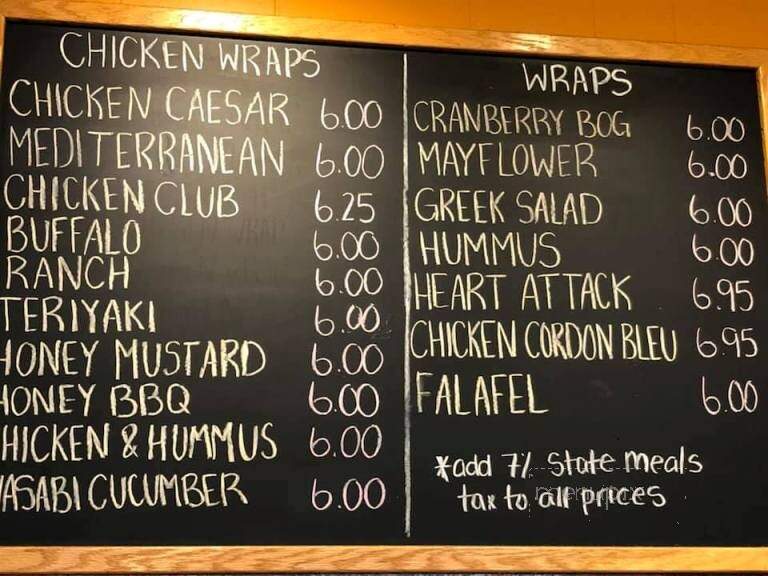 CHICKEN WRAPS
CHICKEN CAESAR 6.00
MEDITERRANEAN 6.00
CHICKEN CLUB 6.25
BUFFALO 6.00
RANCH 6.00
TERIYAKI 6.00
HONEY MUSTARD 6.00
HONEY BBQ 6.00
CHICKEN & HUMMUS 6.00
WASABI CUCUMBER 6.00
WRAPS
CRANBERRY BOG 6.00
MAYFLOWER 6.00
GREEK SALAD 6.00
HUMMUS 6.00
HEART ATTACK 6.95
CHICKEN CORDON BLEU 6.95
FALAFEL 6.00
*add 7% State meals
tax to all prices